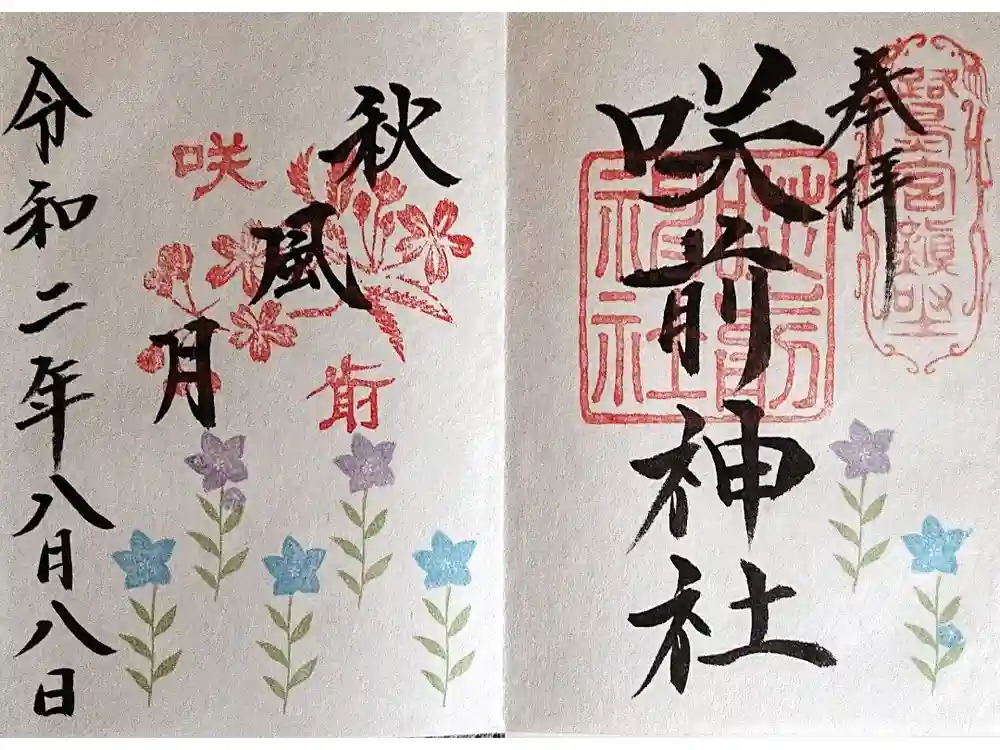 奉拝
咲前神社
咲前神社
秋風月
咲前
令和二年八月八日